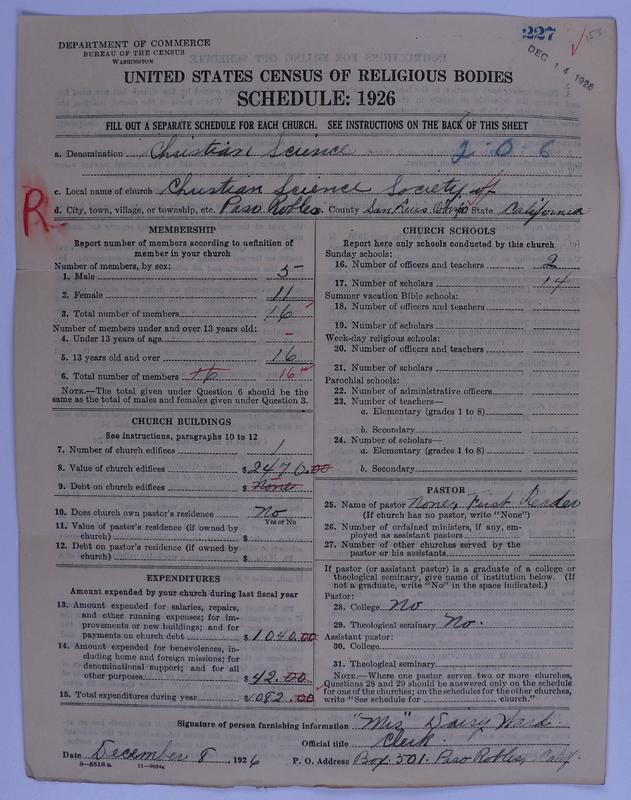 227
53
DEC 14 1926
DEPARTMENT OF COMMERCE
BUREAU OF THE CENSUS
WASHINGTON
UNITED STATES CENSUS OF RELIGIOUS BODIES
SCHEDULE: 1926
FILL OUT A SEPARATE SCHEDULE FOR EACH CHURCH. SEE INSTRUCTIONS ON THE BACK OF THIS SHEET
a. Denomination Christian Science 2-0-6
c. Local name of church Christian Science Society of
R
d. City, town, village, or township, etc. Paso Robles County San Luis Obispo State California
MEMBERSHIP
Report number of members according to definition of
member in your church
Number of members, by sex:
1. Male 5
2. Female 11
3. Total number of members 16
Number of members under and over 13 years old:
4. Under 13 years of age –
5. 13 years old and over 16
6. Total number of members 16 16
NOTE.—The total given under Question 6 should be
same as the total of males and females given under Question 3.
CHURCH BUILDINGS
See instructions, paragraphs 10 to 12
7. Number of church edifices 1
8. Value of church edifices $2470.00
9. Debt on church edifices $ None
10. Does church own pastor's residence No
Yes or No
11. Value of pastor's residence (if owned by
church) $
12. Debt on pastor's residence (if owned by
church) $
EXPENDITURES
Amount expended by your church during last fiscal year
13. Amount expended for salaries, repairs,
and other running expenses; for im-
provements or new buildings; and for
payments on church debt $1040.00
14. Amount expended for benevolences, in-
cluding home and foreign missions; for
denominational support; and for all
other purposes $42.00
15. Total expenditures during year $1082.00
CHURCH SCHOOLS
Report here only schools conducted by this church
Sunday schools:
16. Number of officers and teachers 2
17. Number of scholars 14
Summer vacation Bible schools:
18. Number of officers and teachers
19. Number of scholars
Week-day religious schools:
20. Number of officers and teachers
21. Number of scholars
Parochial schools:
22. Number of administrative officers
23. Number of teachers—
a. Elementary (grades 1 to 8)
b. Secondary
24. Number of scholars—
a. Elementary (grades 1 to 8)
b. Secondary
PASTOR
25. Name of pastor None, First Reader
(If church has no pastor, write "None")
26. Number of ordained ministers, if any, em-
ployed as assistant pastors
27. Number of other churches served by the
pastor or his assistants
If pastor (or assistant pastor) is a graduate of a college or
theological seminary, give name of institution below. (If
not a graduate, write "No" in the space indicated.)
Pastor:
28. College No
29. Theological seminary No.
Assistant pastor:
30. College
31. Theological seminary
NOTE.—Where one pastor serves two or more churches,
Questions 28 and 29 should be answered only on the schedule
for one of the churches; on the schedules for the other churches,
write "See schedule for church."
Signature of person furnishing information "Mrs" Daisy Ward.
Official title Clerk
Date December 8, 1926 P. O. Address Box 501. Paso Robles, Calif.
8—5518a 11—9054a